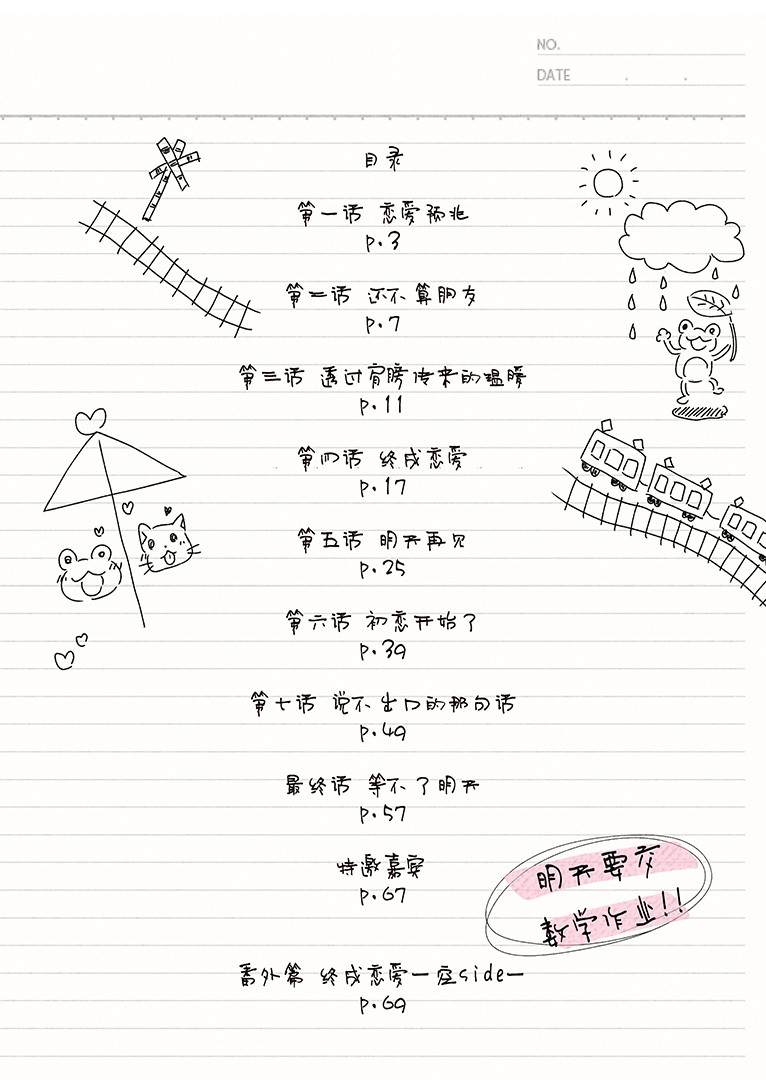 NO.
DATE
目录
第一话 恋爱预兆
p.3
第二话 还不算朋友
p.7
第三话 透过肩膀传来的温暖
p.11
第四话 终成恋爱
p.17
第五话 明天再见
p.25
第六话 初恋开始了
p.39
第七话 说不出口的那句话
p.49
最终话 等不了明天
p.57
特邀嘉宾
p.67
明天要交
数学作业!!
番外篇 终成恋爱一side一
p.69